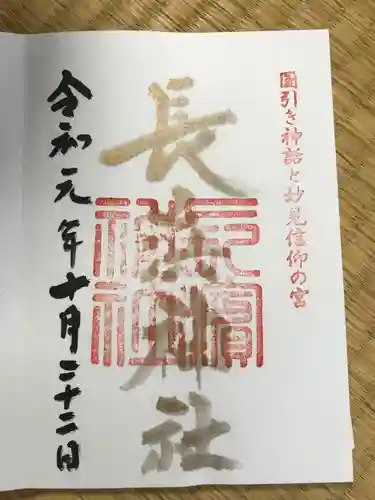 國引き神話と妙見信仰の宮
長浜神社
長濱神社
令和元年十月二十二日